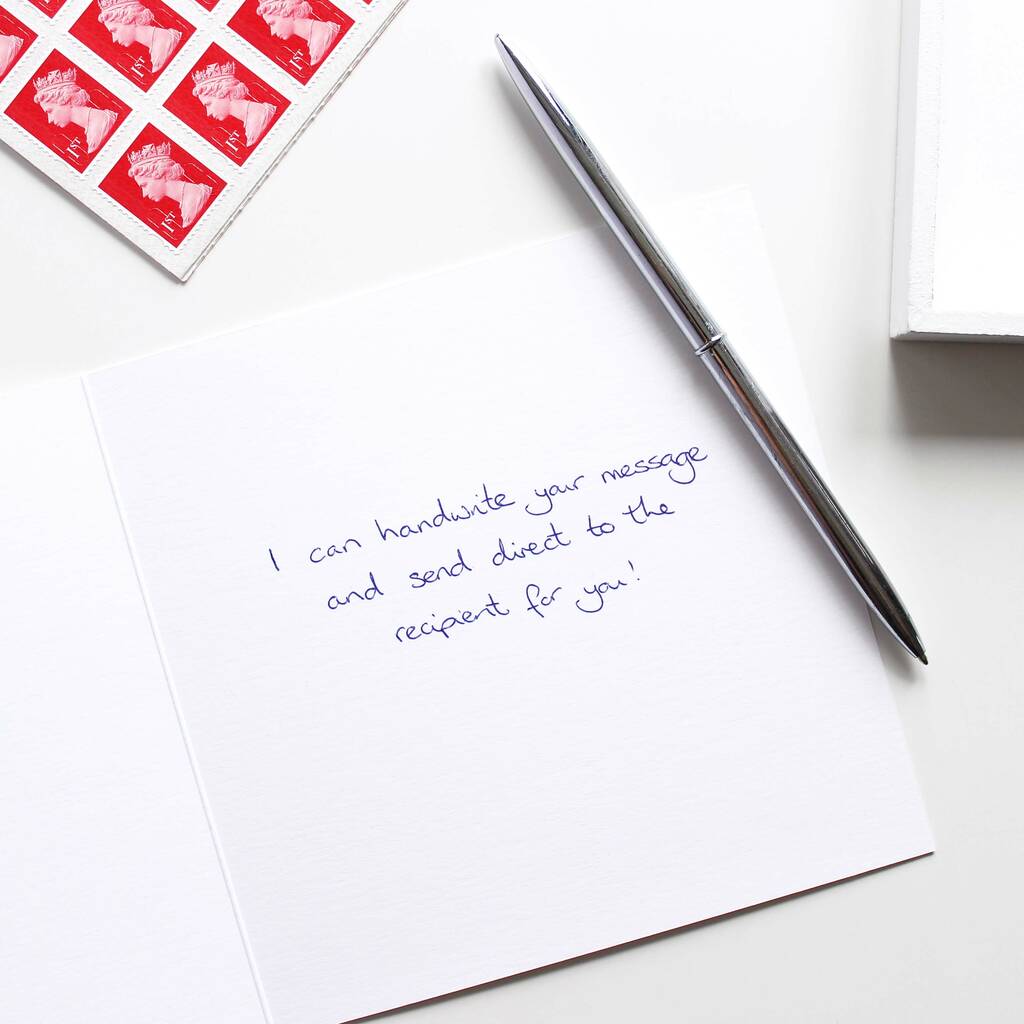 1ST
1ST
1ST
1ST
1ST
I can handwrite your message
and send direct to the
recipient for you!